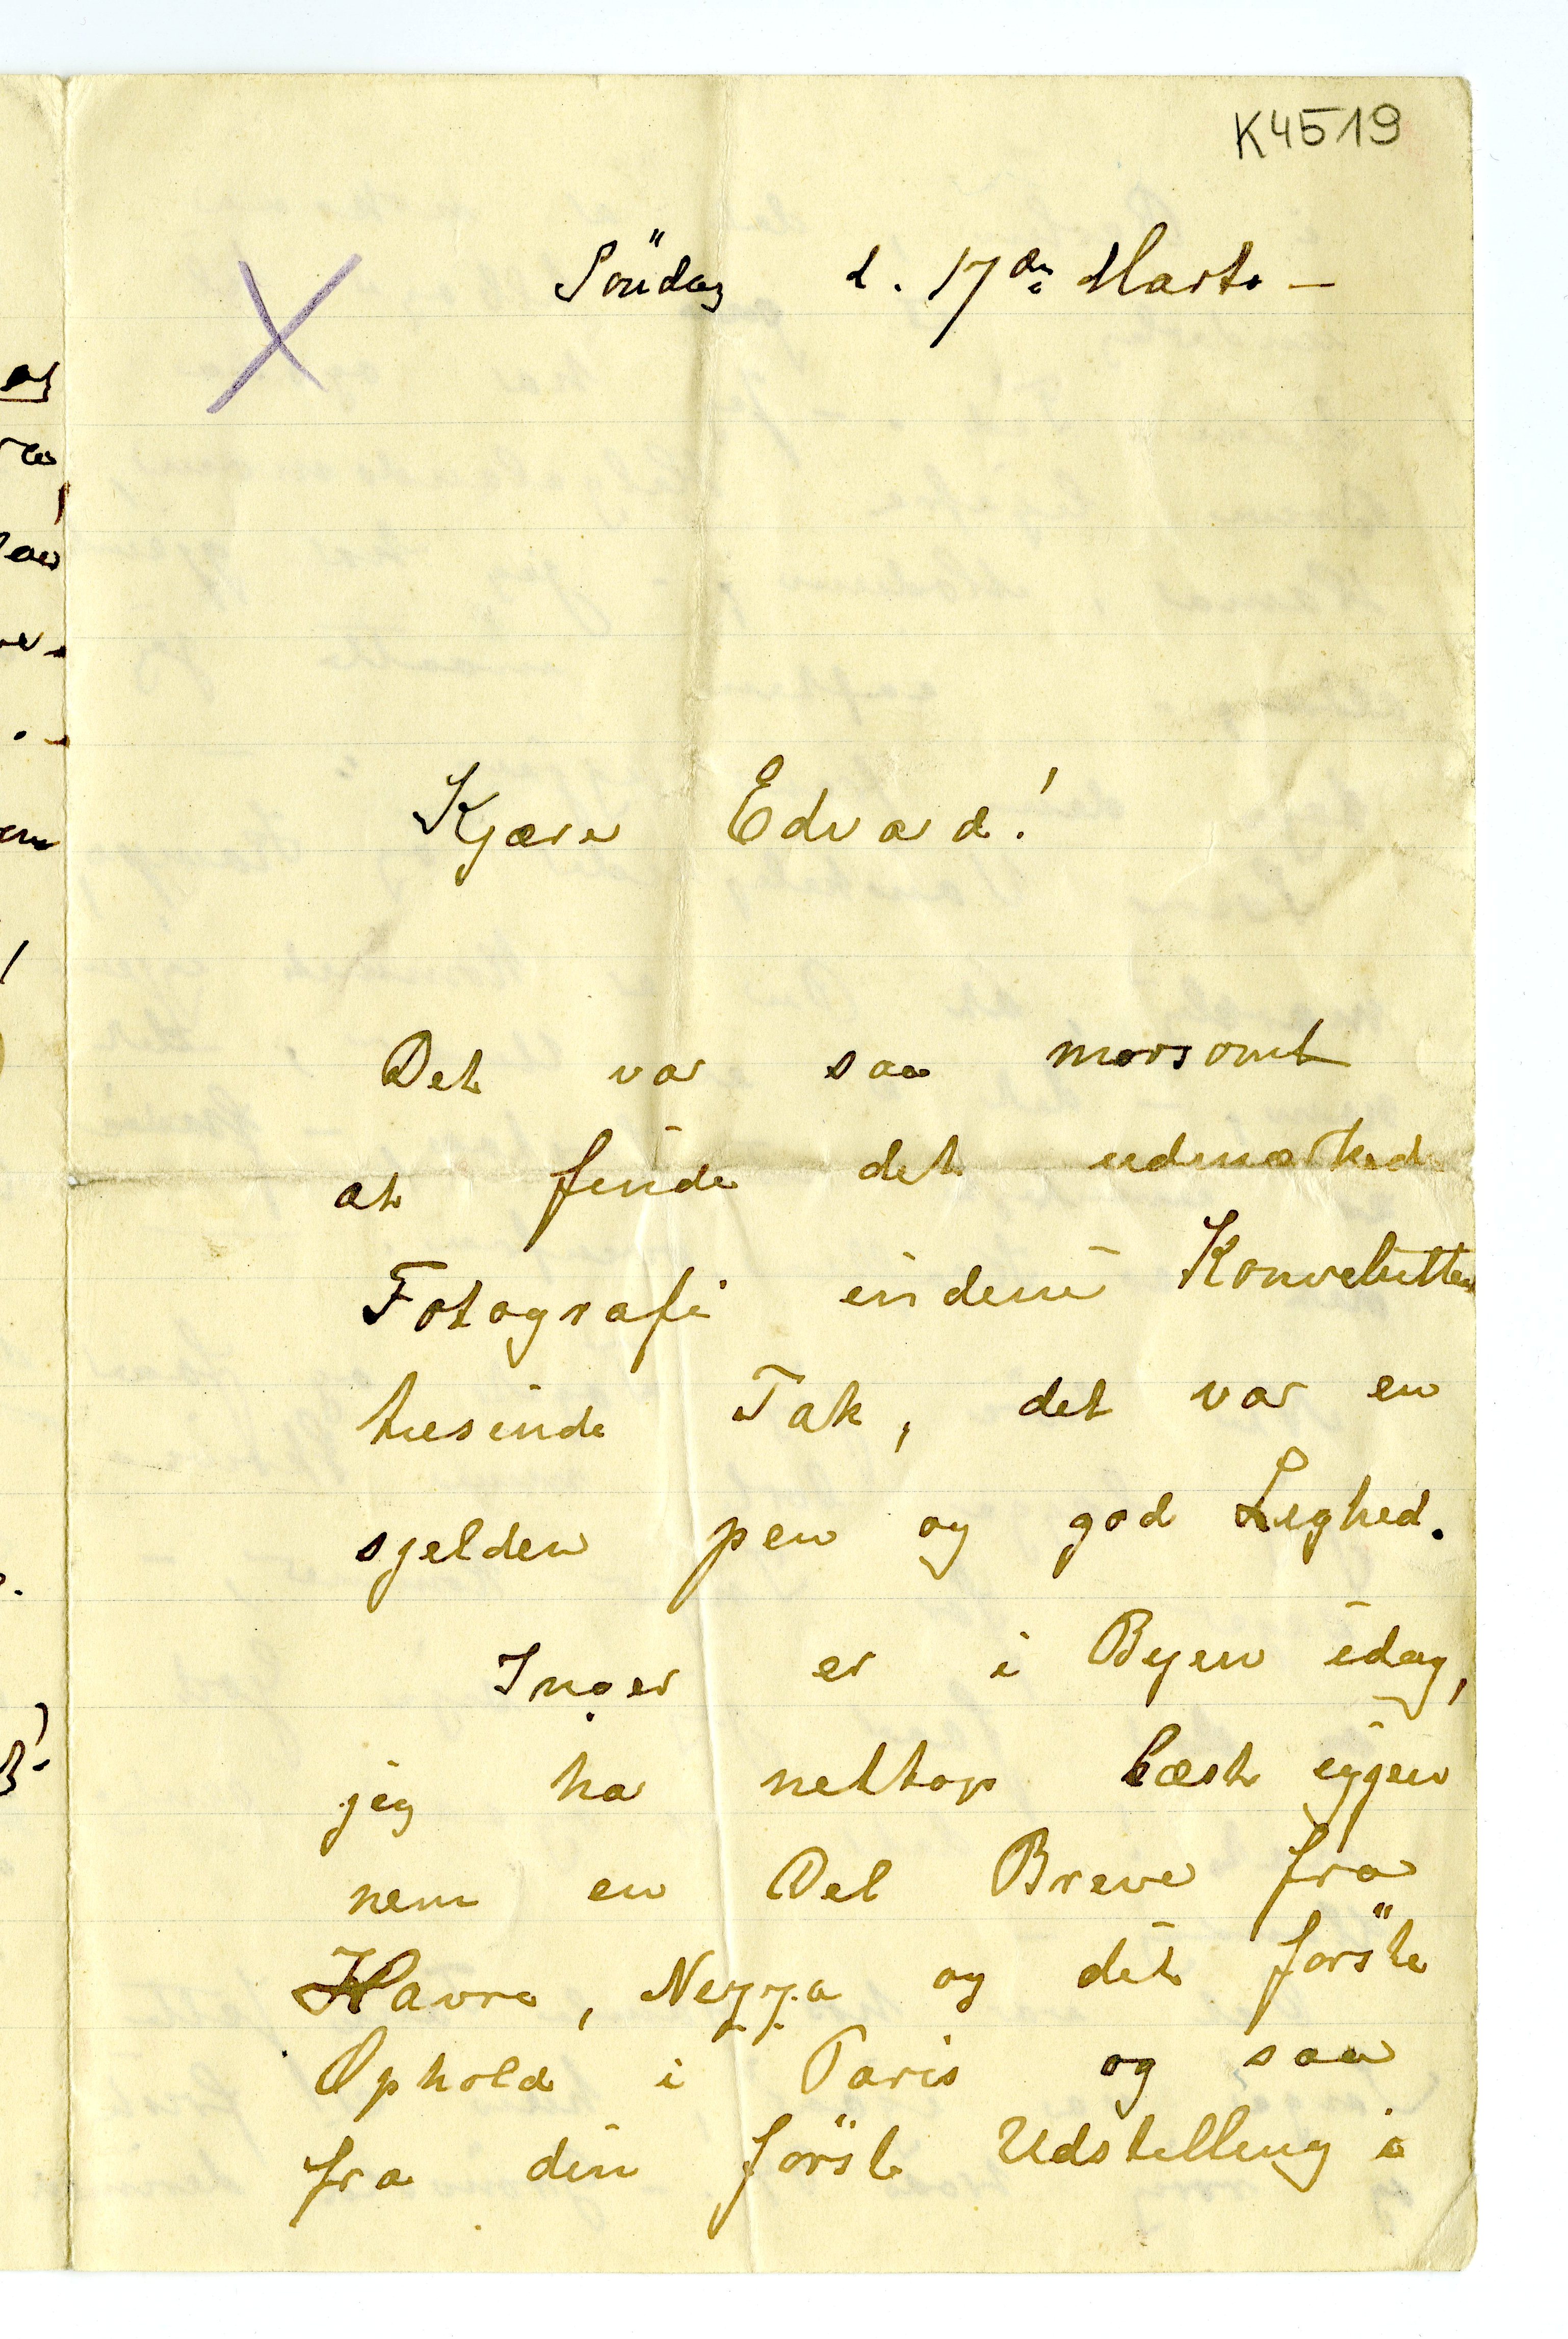 K4519
Söndag d. 17de Marts –
Kjære Edvard!
Det var saa morsomt
at finde det udmærkede
Fotografi indeni Konvolutten
tusinde Tak, det var en
sjelden pen og god Lighed.
Inger er i Byen idag,
jeg ha nettop læst igjen
nem en Del Breve fra
Havre, Nizza og det förste
Ophold i Paris og saa
fra din förste Udstilling i